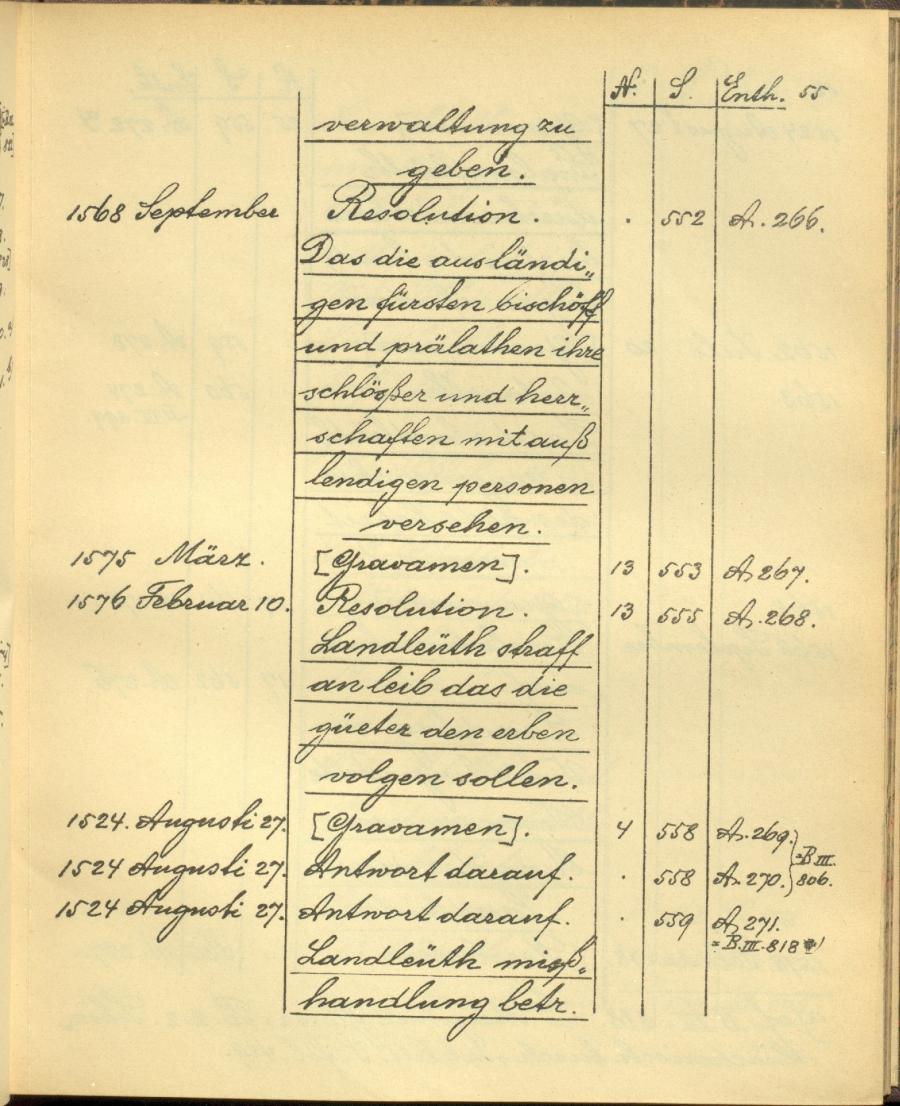 N. S. Enth. 55
verwaltung zu
geben.
1568 September Resolution. . 552 A. 266.
Das die ausländi„
gen fürsten, bischöff
und prälathen ihre
schlößer und herr„
schaften mit auß
lendigen personen
versehen.
1575 März. [Gravamen]. 13 553 A. 267.
1576 Februar 10. Resolution. 13 555 A. 268.
Landleüth straff
an leib das die
güeter den erben
volgen sollen.
1524. Augusti 27. [Gravamen]. 4 558 A. 269.
1524 Augusti 27. Antwort darauf. . 558 A. 270. } = B III. 806.
1524 Augusti 27. Antwort darauf. . 559 A. 271.
= B. III. 818
Landleüth miß„
handlung betr.